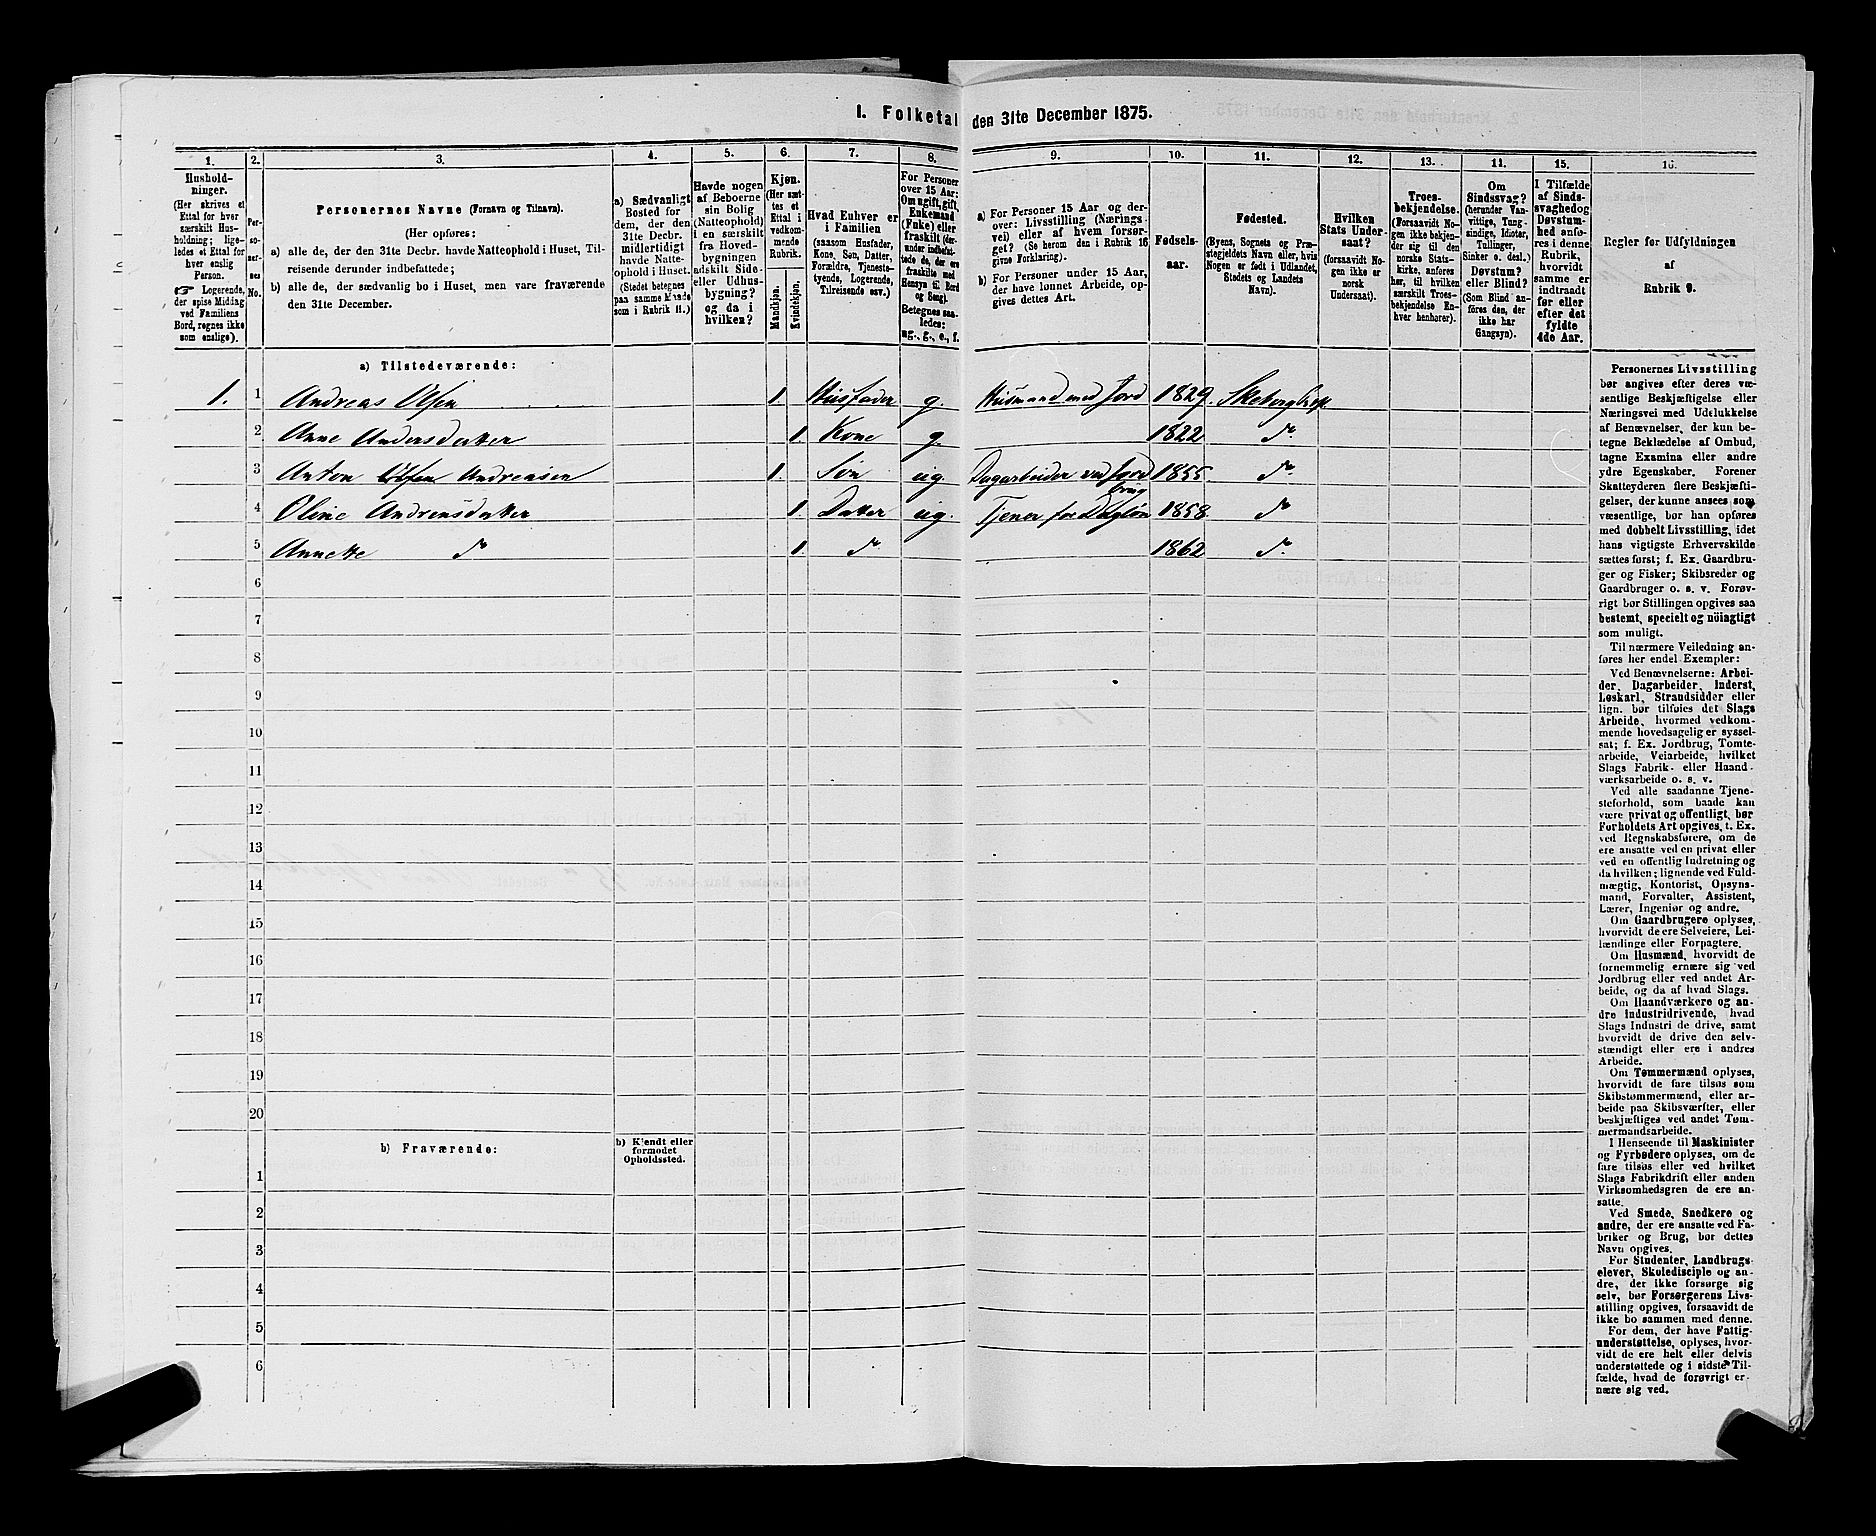 I. Folketal den 31te December 1875.
1. 2. 3. 4. 5. 6. 7. 8. 9. 10. 11. 12. 13. 14. 15. 16.
Husholdninger.
(Her skrives et
Ettal for hver
særskilt Husholdning;
ligeledes et Ettal for
hver enslig
Person.
☞ Logerende,
der spise Middag
ved Familiens
Bord, regnes ikke
som enslige).
Personernes No.
Personernes Navne (Fornavn og Tilnavn).
(Her opføres:
a) alle de, der den 31te Decbr. havde Natteophold i Huset, Tilreisende derunder indbefattede;
b) alle de, der sædvanlig bo i Huset, men vare fraværende
den 31te December.
a) Sædvanligt
Bosted for
dem, der den
31te Decbr.
midlertidigt
havde Natteophold
i Huset.
(Stedet betegnes
paa samme Maade
som i Rubrik 11.)
Havde nogen
af Beboerne
sin Bolig
(Natteophold)
i en særskilt
fra Hovedbygningen
adskilt Side-
eller Udhusbygning?
og da i
hvilken?
Kjøn.
(Her sættes
et
Ettal i
vedkommende
Rubrik.
Mandkjøn.
Kvindekjøn.
Hvad Enhver er
i Familien
(saasom Husfader,
Kone, Søn, Datter,
Forældre, Tjenestetyende,
Logerende,
Tilreisende osv.)
For Personer
over 15 Aar:
Om ugift, gift,
Enkemand
(Enke) eller
fraskilt (derunder
indbefattede
de, der ere
fraskilte med
Hensyn til Bord
og Seng).
Betegnes saaledes:
ug., g., e., f.
a) For Personer 15 Aar og derover: Livsstilling (Næringsvei)
eller af hvem forsørget?
(Se herom den i Rubrik 16
givne Forklaring).
b) For Personer under 15 Aar,
der have lønnet Arbeide, opgives
dettes Art.
Fødselsaar.
Fødested.
(Byens, Sognets og Præstegjeldets
Navn eller, hvis
Nogen er født i Udlandet,
Stedets og Landets
Navn).
Hvilken
Stats Undersaat?
(forsaavidt Nogen
ikke er
norsk
Undersaat).
Troesbekjendelse.
(Forsaavidt Nogen
ikke bekjender
sig til den
norske Statskirke,
anføres
her, til hvilken
særskilt Troesbekjendelse
Enhver
henhører).
Om
Sindssvag?
(herunder Vanvittige,
Tungsindige,
Idioter,
Tullinger,
Sinker o. desl.)
Døvstum?
eller Blind?
(Som Blind anføres
den, der
ikke har
Gangsyn).
I Tilfælde
af Sindssvaghed
og
Døvstumhed
anføres
i denne
Rubrik,
hvorvidt
samme er
indtraadt
før eller
efter det
fyldte
4de Aar.
Regler for Udfyldningen
af
Rubrik 9.
a) Tilstedeværende:
1. 1 Andreas Olsen 1. Husfader g. Husmand med Jord 1829. Skebergbrek
2 Anne Andersdatter 1. Kone g. 1822 do.
3 Anton Olsen Andreasen 1. Søn ug. Dagarbeider ved Jordbrug 1855. do.
4 Oline Andreasdatter 1. Datter ug. Tjener for Dagløn 1858. do
5 Annette do 1. do. 1862 do.
6
7
8
9
10
11
12
13
14
15
16
17
18
19
20
b) Fraværende:
b) Kjendt eller
formodet
Opholdssted.
1
2
3
4
5
6
Personernes Livsstilling
bør angives efter deres væsentlige
Beskjæftigelse eller
Næringsvei med Udelukkelse
af Benævnelser, der kun betegne
Beklædelse af Ombud,
tagne Examina eller andre
ydre Egenskaber. Forener
Skatteyderen flere Beskjæftigelser,
der kunne ansees som
væsentlige, bør han opføres
med dobbelt Livsstilling, idet
hans vigtigste Erhvervskilde
sættes først; f. Ex. Gaardbruger
og Fisker; Skibsreder og
Gaardbruger o. s. v. Forøvrigt
bør Stillingen opgives saa
bestemt, specielt og nøiagtigt
som muligt.
Til nærmere Veiledning anføres
her endel Exempler:
Ved Benævnelserne: Arbeider,
Dagarbeider, Inderst,
Løskarl, Strandsidder eller
lign. bør tilføies det Slags
Arbeide, hvormed vedkommende
hovedsagelig er sysselsat;
f. Ex. Jordbrug, Tomtearbeide,
Veiarbeide, hvilket
Slags Fabrik- eller Haandværksarbeide
o. s. v.
Ved alle saadanne Tjenesteforhold,
som baade kan
være privat og offentligt, bør
Forholdets Art opgives, t. Ex.
ved Regnskabsførere, om de
ere ansatte ved en privat eller
ved en offentlig Indretning og
da hvilken; lignende ved Fuldmægtig,
Kontorist, Opsynsmand,
Forvalter, Assistent,
Lærer, Ingeniør og andre.
Om Gaardbrugere oplyses,
hvorvidt de ere Selveiere, Leilændinge
eller Forpagtere.
Om Husmænd, hvorvidt de
fornemmelig ernære sig ved
Jordbrug eller ved andet Arbeide,
og da af hvad Slags.
Om Haandværkere og andre
Industridrivende, hvad
Slags Industri de drive, samt
hvorvidt de drive den selvstændigt
eller ere i andres
Arbeide.
Om Tømmermænd oplyses,
hvorvidt de fare tilsøs som
Skibstømmermænd, eller arbeide
paa Skibsværfter, eller
beskjæftiges ved andet Tømmermandsarbeide.
I Henseende til Maskinister
og Fyrbødere oplyses, om de
fare tilsøs eller ved hvilket
Slags Fabrikdrift eller anden
Virksomhedsgren de ere ansatte.
Ved Smede, Snedkere og
andre, der ere ansatte ved Fabriker
og Brug, bør dettes
Navn opgives.
For Studenter, Landbrugselever,
Skoledisciple og andre,
der ikke forsørge sig
selv, bør Forsørgerens Livsstilling
opgives, forsaavidt de
ikke bo sammen med denne.
For dem, der have Fattigunderstøttelse,
oplyses, hvorvidt
de ere helt eller delvis
understøttede og i sidste Tilfælde,
hvad de forøvrigt ernære
sig ved.